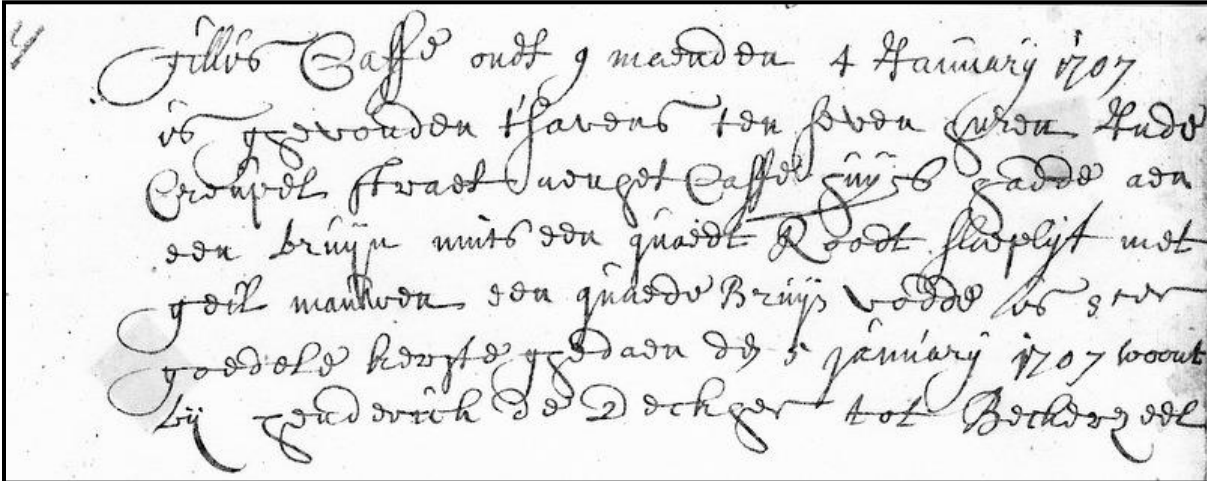 4
Jillis Caffe oudt 9 maenden 4 January 1707
is ghevonden tsavens ten seven huren Inde
Creupel straet neuget Caffe huys hadde aen
een bruyn muts een quaedt Roodt slaeplyf met
geil mauwen een quaede Bruyn vodde is ster
goedele kerste ghedaen den 5 january 1707 woont
by henderick de Deckher tot Beckerzeel